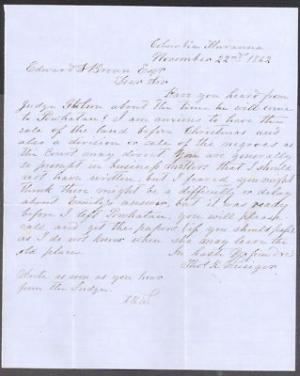 Columbia Fluvanna
November 22nd, 1862
Edward S Brown Esqr
Dear Sir
Have you heard from
Judge about the time he will come
to Powhatan? I am anxious to have the
sale of the land before Christmas and
also a division or sale of the negroes as
the Court may direct. You are generally
so prompt in business matters that I should
not have written, but I feared you might
think there might be a difficulty or delay
about Emily's answer, but it was ready
before I left Powhatan, you will please
call and get the papers if you should
as I do not know when she may leave the
old place.
In haste Yr friend &c
Thos R
Write as soon as you hear
from the Judge.